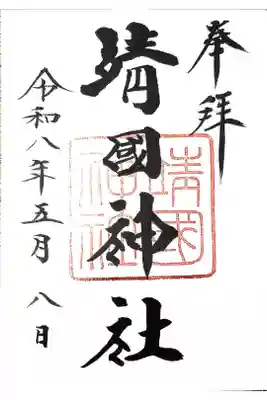 奉拝
靖國神社
靖国
神社
令和八年五月八日